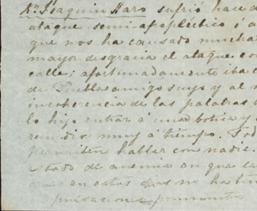 Dn. Joaquin Haro sufrió hace d
ataque semi-apoplectico ó a
que nos ha causado mucha
mayor desgracia el ataque co
calle; afortunadamente iba c
de amigo suyo y al n
incoherencia de las palabras
lo hizo entrar á una botica y
remedio muy á tiempo.
permiten hablar con nadie.
tado de anemia en que
en estos no